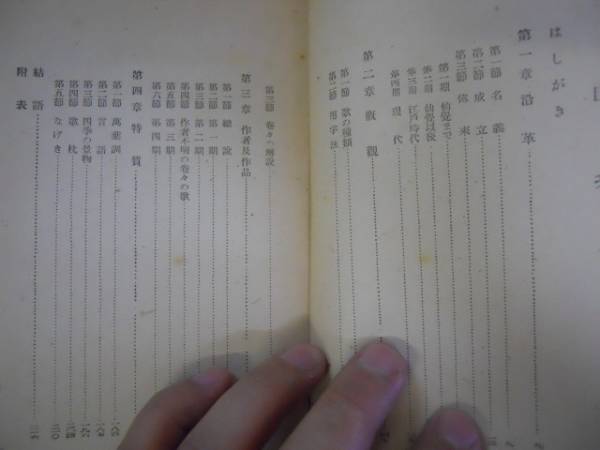 はしがき
第一章 沿革
第一節 名義
第二節 成立
第三節 傳来
第一期 仙覺まで
第二期 仙覺以後
第三期 江戸時代
第四期 現代
第二章 概觀
第一節 歌の種類
第二節 用字法
第三節 巻々の解説
第三章 作者及作品
第一節 總説
第二節 第一期
第三節 第二期
第四節 作者不明の巻々の歌
第五節 第三期
第六節 第四期
第四章 特質
第一節 萬葉調
第二節 言語
第三節 四季の景物
第四節 歌枕
第五節 なげき
結語
附表